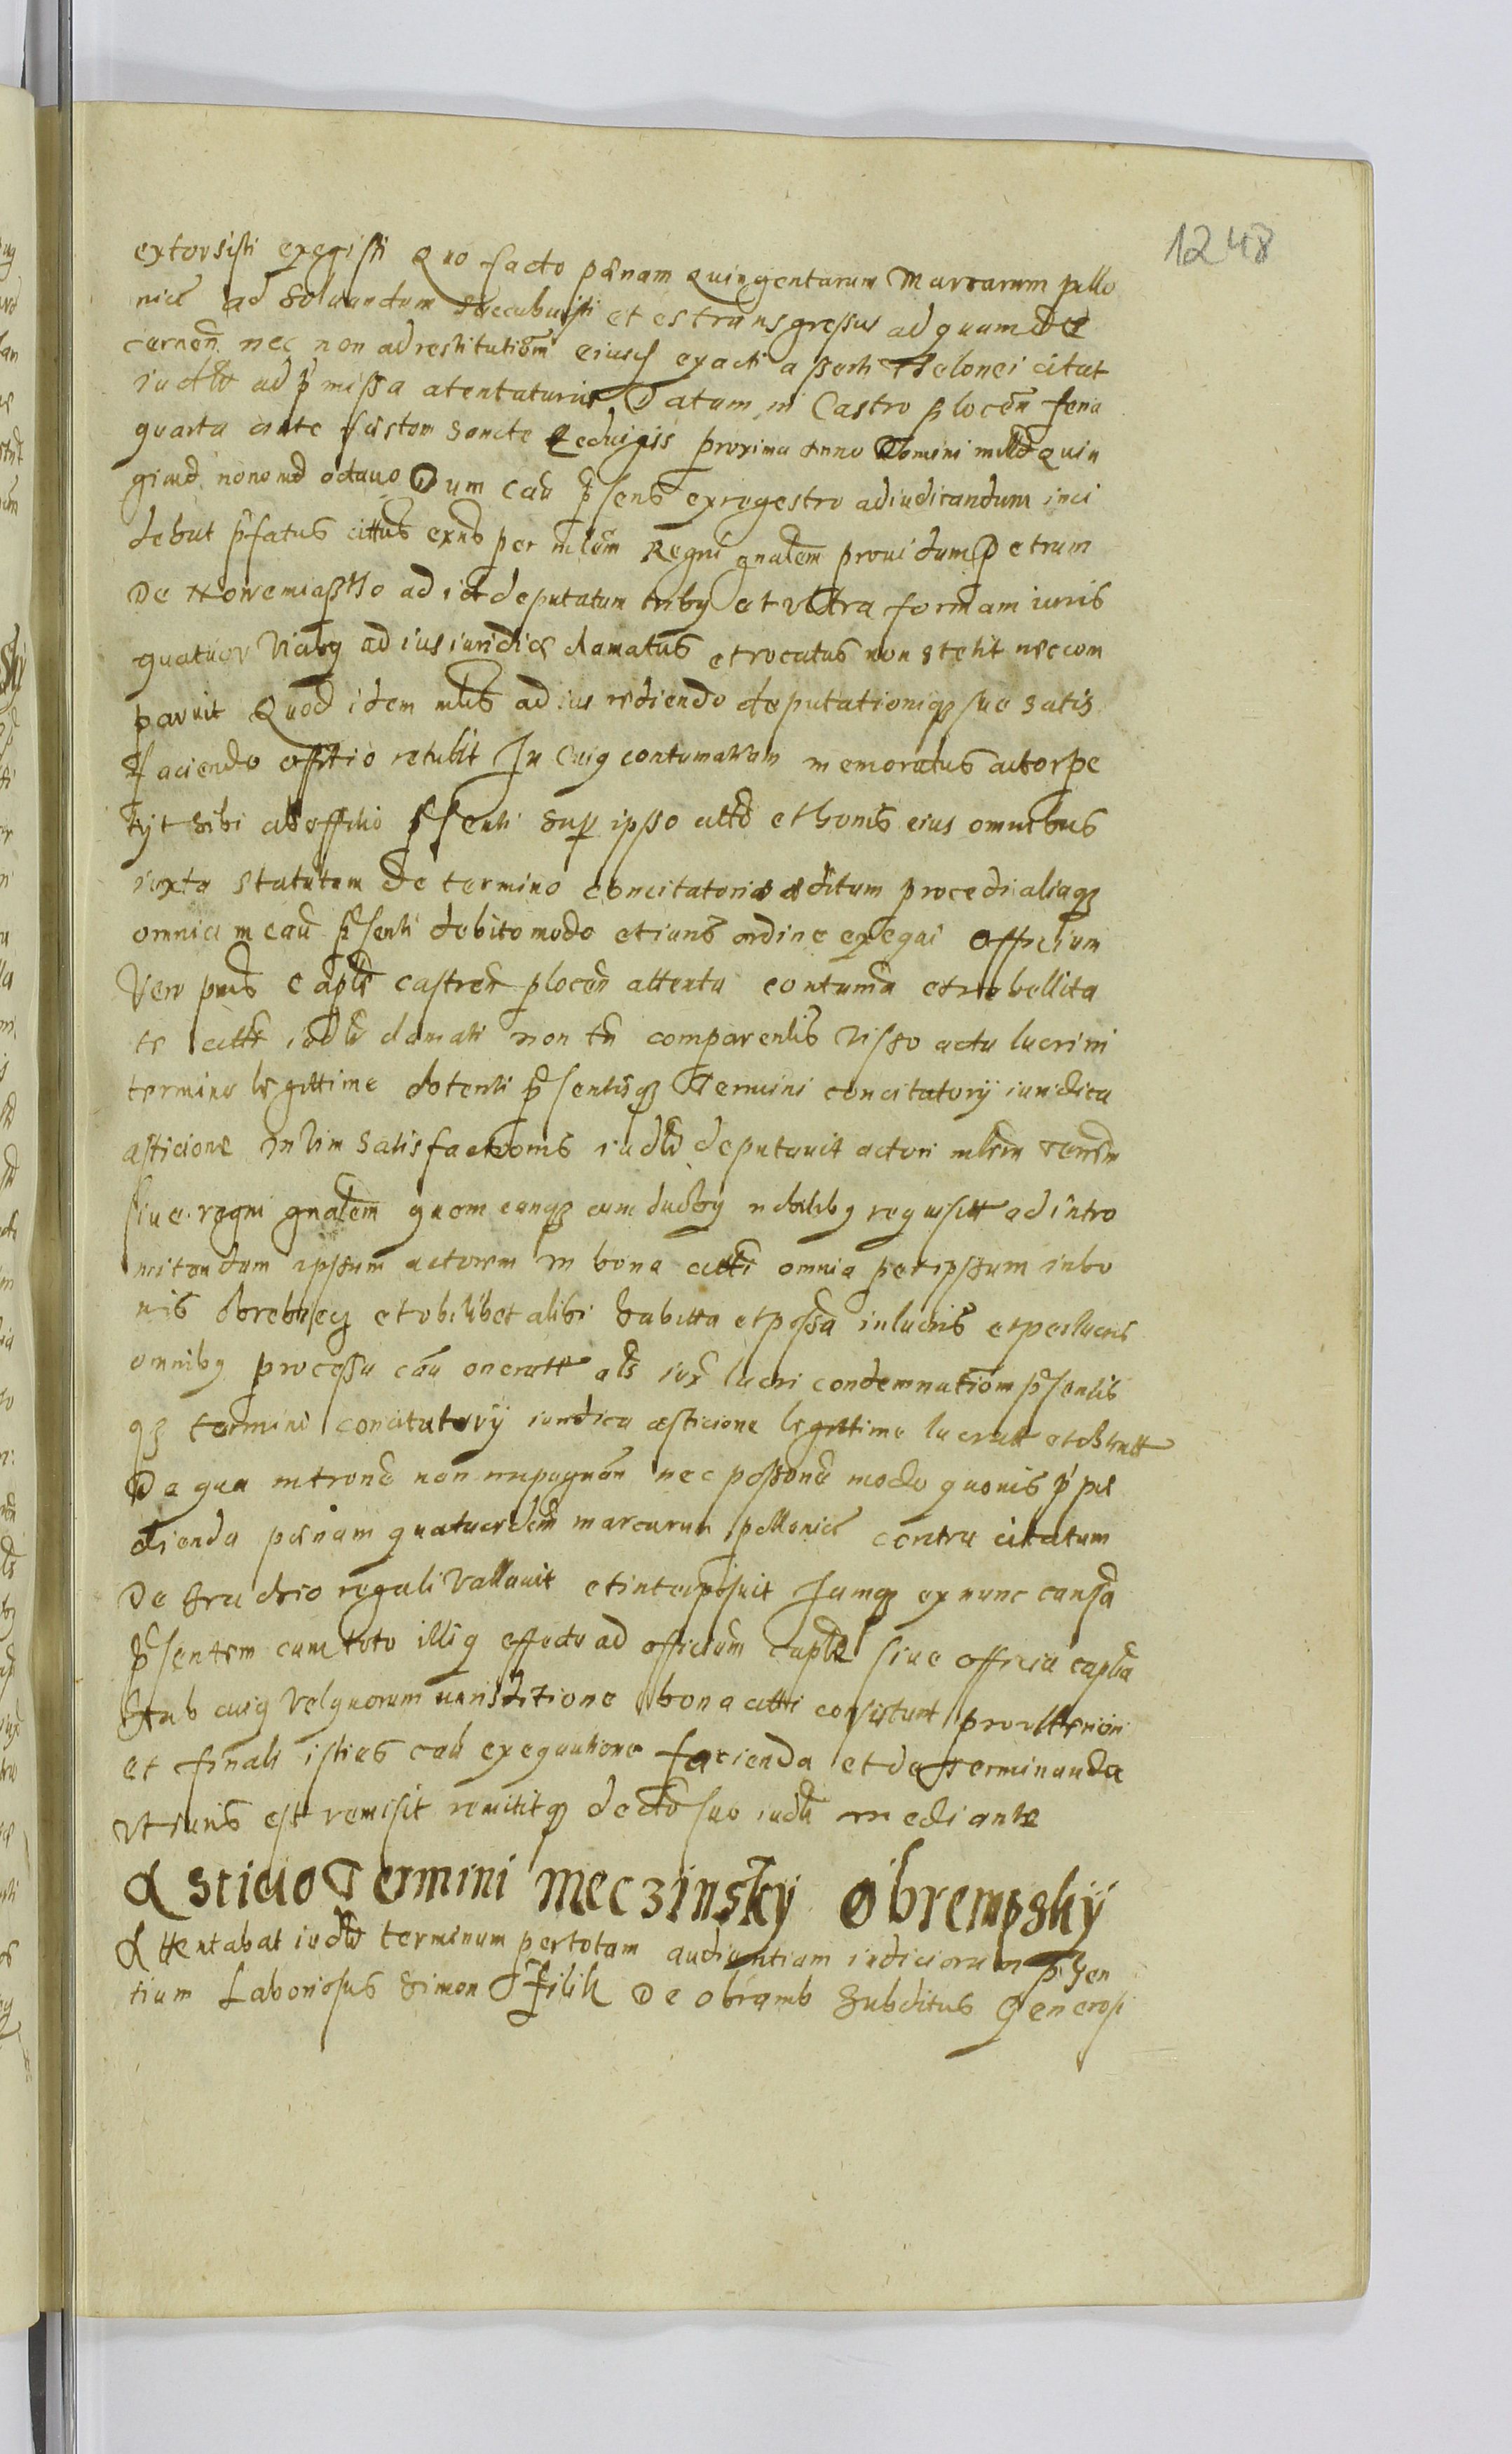 1248
extorsisti exegisti Quo facto pænam Quingentarum Marcarum pollo
nice ad soluendum succubuisti et es transgressus ad quam de
cernen nec non ad restitutiōm eiusd exacti asserti Thelonei citat
iudtr ad p̃missa atentaturus Datum in Castro plocen feria
quarta ante festum Sancte Heduigis proxima Anno Domini milld Quin
gimd nonomd octauo Dum cau p̃sens ex regestro adiudicandum inci
debat p̃fatus cittus exns per mlem Regni gnalem prouidum Petrum
De Nowemiastho ad id deputatum tribq et vltra formam iuris
quatuor vicibq ad ius iuridice clamatus et vocatus non stetit nec com
paruit Quod idem mlis ad ius rediendo deputationiq sue satis
faciendo offitio retulit In cuiq contumatiam memoratus actor pe
tyt sibi ab offitio p̃senti sup ipso citto et bonis eius omnibus
iuxta statutum de termino concitatorio æditum procedi aliaq
omnia in cau p̃senti debito modo et iuris ordine exequi Officium
vero pns caple castren plocen attenta contuma et rebellita
te citti iudtr clamati non tn comparentis visso actu lucri in
termino legittime obtenti p̃sentisq Termini concitatorij iuridica
asticione In vim satisfactionis iudtr deputauit actori mlem terrem
siue regni gnalem quem cunq cum duobq nobilibq requisitt ad intro
mitendum ipsum actorem in bona citti omnia per ipsum in bo
nis Obrebsecz et vbilibet alibi habitta et possa in lucris et perlucris
omnibq processu cau oneratt als iux lucri condemnatiom p̃sentis
q termini concitatorij iuridica asticione legittime lucratt et obtentt
De qua introne non impugnan nec possone modo quouis p̃pe
dienda pænam quatuordem marcarum pollonice contra citatum
De brachio regali vallauit et interposuit Jamq ex nunc causa
p̃sentem cum toto illiq effectu ad officium caple siue officia caplia
sub cuiq vel quorum iurisditione bona citti consistunt pro vlteriori
et finali istius cau exequutione facienda et determinanda
vt iuris est remisit remititq decto suo iudtr mediante
Asticio Termini Meczinsky Obrempsky
Attentabat iudtr terminum per totam audientiam iudiciorum p̃sen
tium Laboriosus Simon Filik De Obramb Subditus Generosi